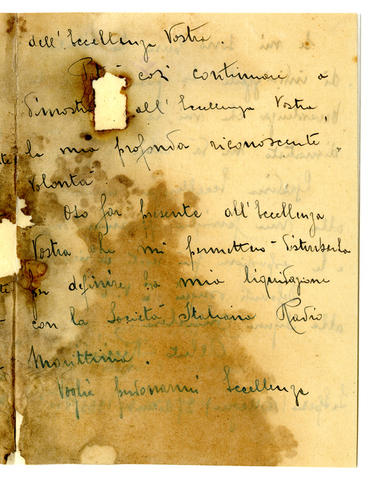 dell'Eccellenza Vostra.
così continuare a
dimostr all'Eccellenza Vostra
la mia profonda riconoscente
volontà.
Oso far presente all'Eccellenza
Vostra che mi permetterò
per definire la mia liquidazione
con la Società Italiana Radio
Marittima.
Voglia perdonarmi Eccellenza